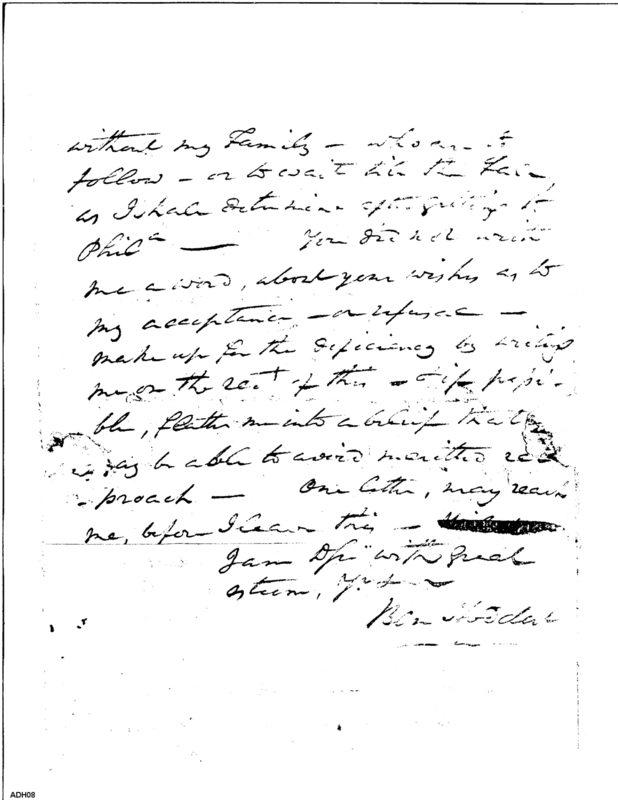 without my Family - who are to
follow - or to wait till the Fall,
as I shall determine after getting to
Phila — You did not write
me a word, about your wishes as to
my acceptance - or refusal -
make up for the deficiency by writing
me on the rect of this - & if possi-
ble, flatter me into a belief that I
may be able to avoid merited re
-proach — One letter, may reach
me, before I leave this -
I am D Sir with great
esteem, Yr
Ben Stoddert
ADH08